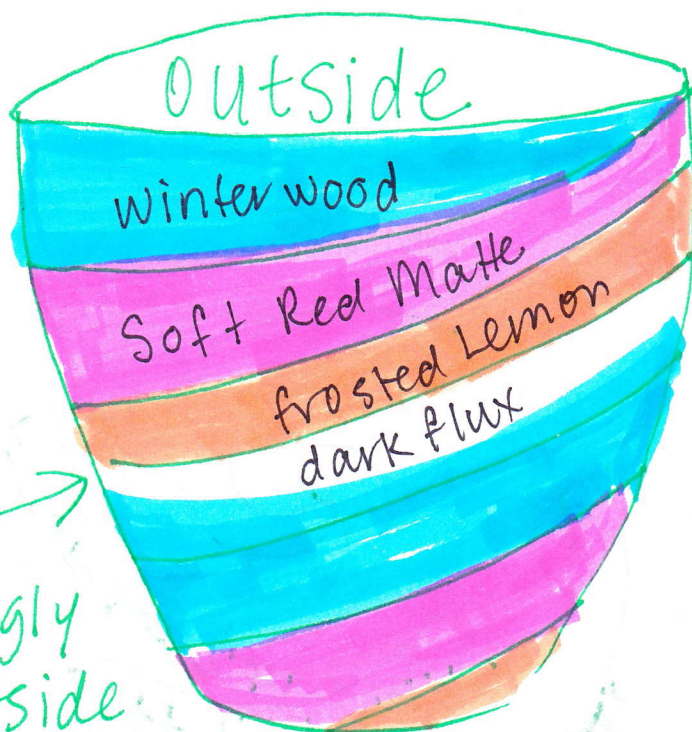 Outside
winter wood
Soft Red Matte
frosted Lemon
dark flux
gly
side